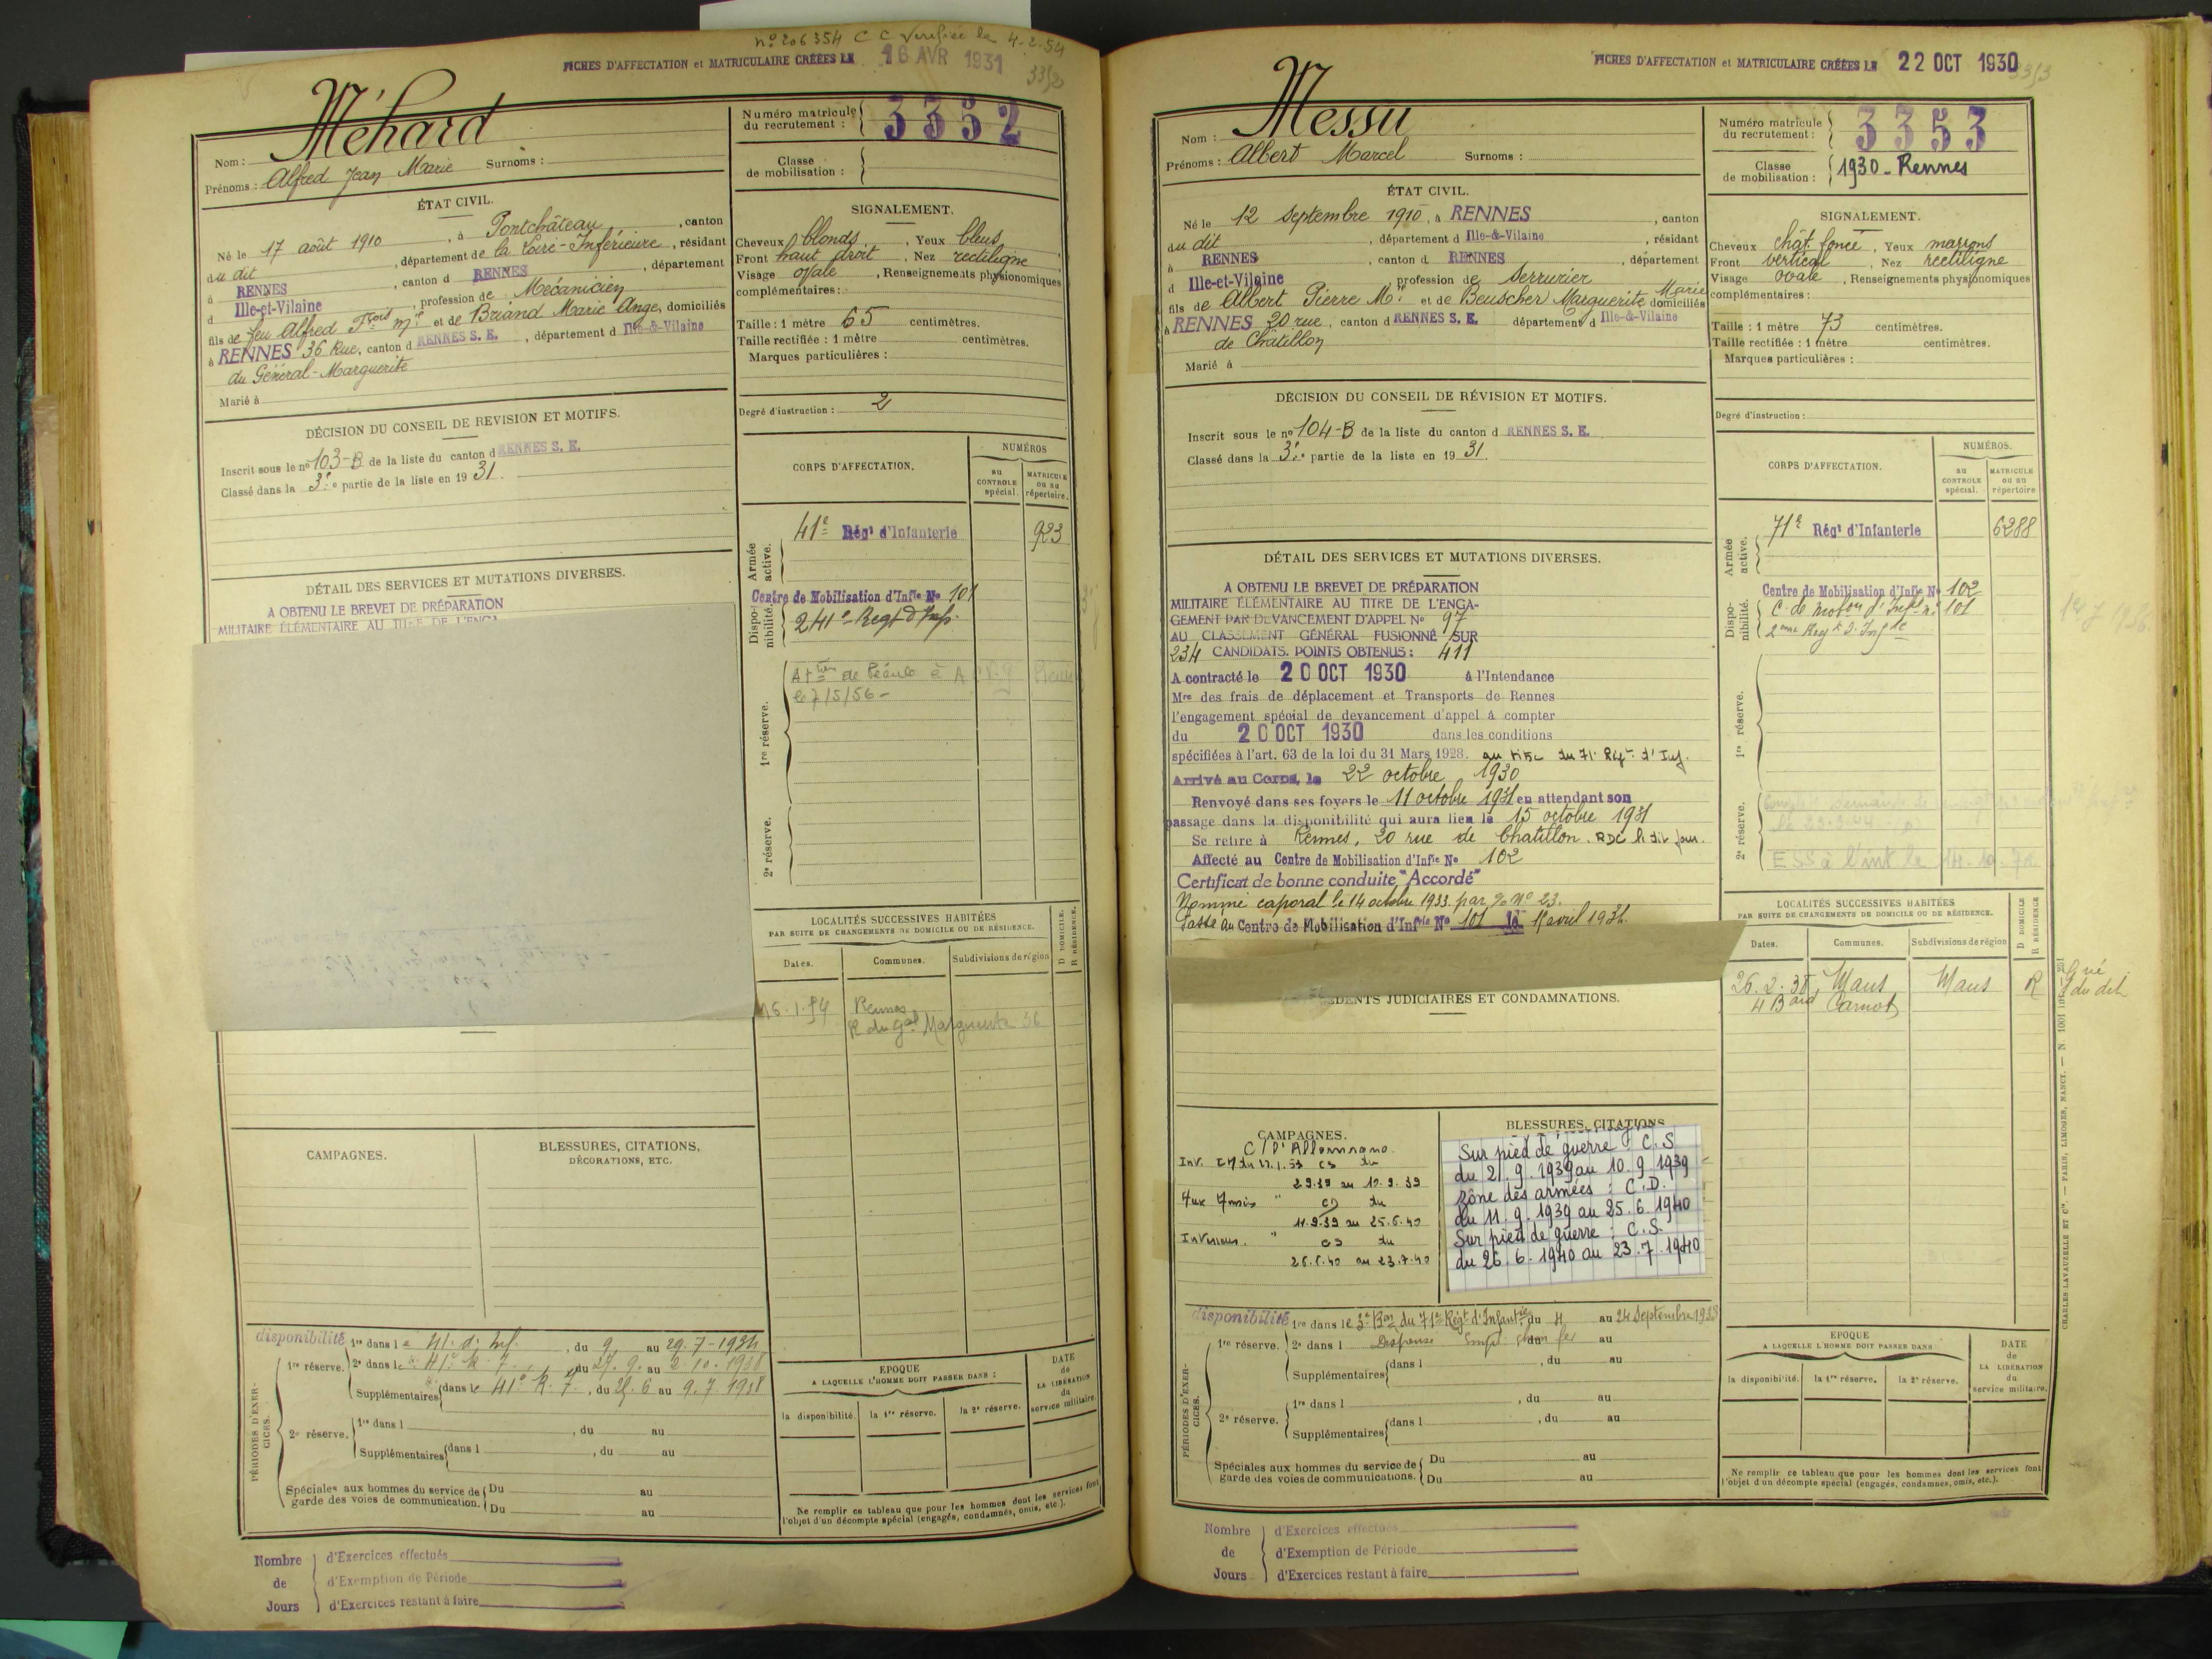 nº 206354 C C Vérifiée le 4-2-54
FICHES D'AFFECTATION et MATRICULAIRE CRÉÉES LE 16 AVR 1931
3352
Nom : Méhard
Prénoms : Alfred Jean Marie Surnoms :
Numéro matricule du recrutement : 3352
Classe de mobilisation :
ÉTAT CIVIL.
Né le 17 août 1910, à Pontchâteau, canton
du dit, département de la Loire-Inférieure, résidant
à RENNES, canton d RENNES, département
d Ille-et-Vilaine, profession de Mécanicien
fils de feu Alfred Fçois Mie et de Briand Marie Ange, domiciliés
à RENNES 36 Rue, canton d RENNES S. E., département d Ille-&-Vilaine
du Général-Marguerite
Marié à
SIGNALEMENT.
Cheveux blonds, Yeux bleus
Front haut droit, Nez rectiligne
Visage ovale, Renseignements physionomiques
complémentaires :
Taille : 1 mètre 65 centimètres.
Taille rectifiée : 1 mètre centimètres.
Marques particulières :
Degré d'instruction : 2
DÉCISION DU CONSEIL DE REVISION ET MOTIFS.
Inscrit sous le nº 103-B de la liste du canton d RENNES S. E.
Classé dans la 3e partie de la liste en 1931.
CORPS D'AFFECTATION.
NUMÉROS
au CONTROLE spécial.
MATRICULE ou au répertoire.
Armée active.
41e Régt d'Infanterie 923
Disponibilité.
Centre de Mobilisation d'Infie Nº 101
241e Regt d'Inf.
1re réserve.
le 7/5/56-
2e réserve.
DÉTAIL DES SERVICES ET MUTATIONS DIVERSES.
A OBTENU LE BREVET DE PRÉPARATION
MILITAIRE ÉLÉMENTAIRE AU TITRE DE L'ENGA
LOCALITÉS SUCCESSIVES HABITÉES
PAR SUITE DE CHANGEMENTS DE DOMICILE OU DE RÉSIDENCE.
Dates. Communes. Subdivisions de région D DOMICILE. R RÉSIDENCE.
16.1.54 Rennes
R du Gal Marguerite 36
CAMPAGNES.
BLESSURES, CITATIONS,
DÉCORATIONS, ETC.
PÉRIODES D'EXERCICES.
disponibilité 1re dans le 41e d'Inf., du 9 au 29.7-1934
1re réserve. 2e dans le 41e R.I., du 27.9. au 2 10.1938
Supplémentaires dans le 41e R.I., du 25.6 au 9.7.1938
2e réserve. 1re dans l , du au
Supplémentaires dans l , du au
Spéciales aux hommes du service de garde des voies de communication. Du au
Du au
EPOQUE
A LAQUELLE L'HOMME DOIT PASSER DANS :
la disponibilité. la 1re réserve. la 2e réserve.
DATE de LA LIBÉRATION du service militaire.
Ne remplir ce tableau que pour les hommes dont les services font
l'objet d'un décompte spécial (engagés, condamnés, omis, etc.).
Nombre de Jours
d'Exercices effectués
d'Exemption de Période
d'Exercices restant à faire
FICHES D'AFFECTATION et MATRICULAIRE CRÉÉES LE 22 OCT 1930
3353
Nom : Messu
Prénoms : Albert Marcel Surnoms :
Numéro matricule du recrutement : 3353
Classe de mobilisation : 1930 - Rennes
ÉTAT CIVIL.
Né le 12 septembre 1910, à RENNES, canton
du dit, département d Ille-&-Vilaine, résidant
à RENNES, canton d RENNES, département
d Ille-et-Vilaine profession de Serrurier
fils de Albert Pierre Mie et de Beuscher Marguerite Marie domiciliés
à RENNES 20 rue, canton d RENNES S. E. département d Ille-&-Vilaine
de Châtillon
Marié à
SIGNALEMENT.
Cheveux chât. foncé, Yeux marrons
Front vertical, Nez rectiligne
Visage ovale, Renseignements physionomiques
complémentaires :
Taille : 1 mètre 73 centimètres.
Taille rectifiée : 1 mètre centimètres.
Marques particulières :
Degré d'instruction :
DÉCISION DU CONSEIL DE RÉVISION ET MOTIFS.
Inscrit sous le nº 104-B de la liste du canton d RENNES S. E.
Classé dans la 3e partie de la liste en 1931.
CORPS D'AFFECTATION.
NUMÉROS.
au CONTROLE spécial.
MATRICULE ou au répertoire
Armée active.
71e Régt d'Infanterie 6288
Disponibilité.
Centre de Mobilisation d'Infie Nº 102
C. de mobon d'Infie nº 101
2ème Regt d'Infie
1re réserve.
2e réserve.
ESS à l'int le 14.10.76
DÉTAIL DES SERVICES ET MUTATIONS DIVERSES.
A OBTENU LE BREVET DE PRÉPARATION
MILITAIRE ÉLÉMENTAIRE AU TITRE DE L'ENGA-
GEMENT PAR DEVANCEMENT D'APPEL Nº 97
AU CLASSEMENT GÉNÉRAL FUSIONNÉ SUR
234 CANDIDATS. POINTS OBTENUS : 411
A contracté le 20 OCT 1930 à l'Intendance
Mre des frais de déplacement et Transports de Rennes
l'engagement spécial de devancement d'appel à compter
du 20 OCT 1930 dans les conditions
spécifiées à l'art. 63 de la loi du 31 Mars 1928. au titre du 71e Rgt d'Inf.
Arrivé au Corps, le 22 octobre 1930
Renvoyé dans ses foyers le 11 octobre 1931 en attendant son
passage dans la disponibilité qui aura lieu le 15 octobre 1931
Se retire à Rennes, 20 rue de Chatillon. RDC le dit jour.
Affecté au Centre de Mobilisation d'Infie Nº 102
Certificat de bonne conduite "Accordé"
Nommé caporal le 14 octobre 1933 par % Nº 23.
Passé au Centre de Mobilisation d'Infrie Nº 101 le 1er avril 1934.
DENTS JUDICIAIRES ET CONDAMNATIONS.
LOCALITÉS SUCCESSIVES HABITÉES
PAR SUITE DE CHANGEMENTS DE DOMICILE OU DE RÉSIDENCE.
Dates. Communes. Subdivisions de région D DOMICILE R RÉSIDENCE
26.2.38 Mans Mans R
4 Bard Carnot
CAMPAGNES.
C/ l'Allemagne
Int. CS du
2.9.39 au 10.9.39
Aux Armées " CD du
11.9.39 au 25.6.40
Intérieur. " CS du
26.6.40 au 23.7.40
BLESSURES, CITATIONS
Sur pied de guerre : C.S
du 2.9.1939 au 10.9.1939
Zône des armées : C.D.
du 11.9.1939 au 25.6.1940
Sur pied de guerre : C.S.
du 26.6.1940 au 23.7.1940
PÉRIODES D'EXERCICES.
disponibilité 1re dans le 3e Bon du 71e Régt d'Infantie du 4 au 24 Septembre 1933
1re réserve. 2e dans l Dispensé du au
Supplémentaires dans l , du au
2e réserve. 1re dans l , du au
Supplémentaires dans l , du au
Spéciales aux hommes du service de garde des voies de communications. Du au
Du au
EPOQUE
A LAQUELLE L'HOMME DOIT PASSER DANS
la disponibilité. la 1re réserve. la 2e réserve.
DATE de LA LIBÉRATION du service militaire.
Ne remplir ce tableau que pour les hommes dont les services font
l'objet d'un décompte spécial (engagés, condamnés, omis, etc.).
CHARLES-LAVAUZELLE ET Cie. — PARIS, LIMOGES, NANCY. — N 1001
Nombre de Jours
d'Exercices effectués
d'Exemption de Période
d'Exercices restant à faire